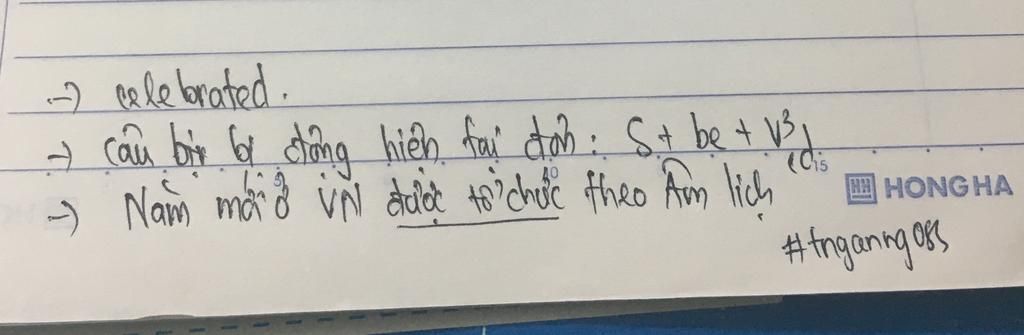 → celebrated.
→ Câu bị động hiện tại đơn: S + be + V3/ed
→ Năm mới ở VN được tổ chức theo Âm lịch
15
HH HONG HA
#tnganng085